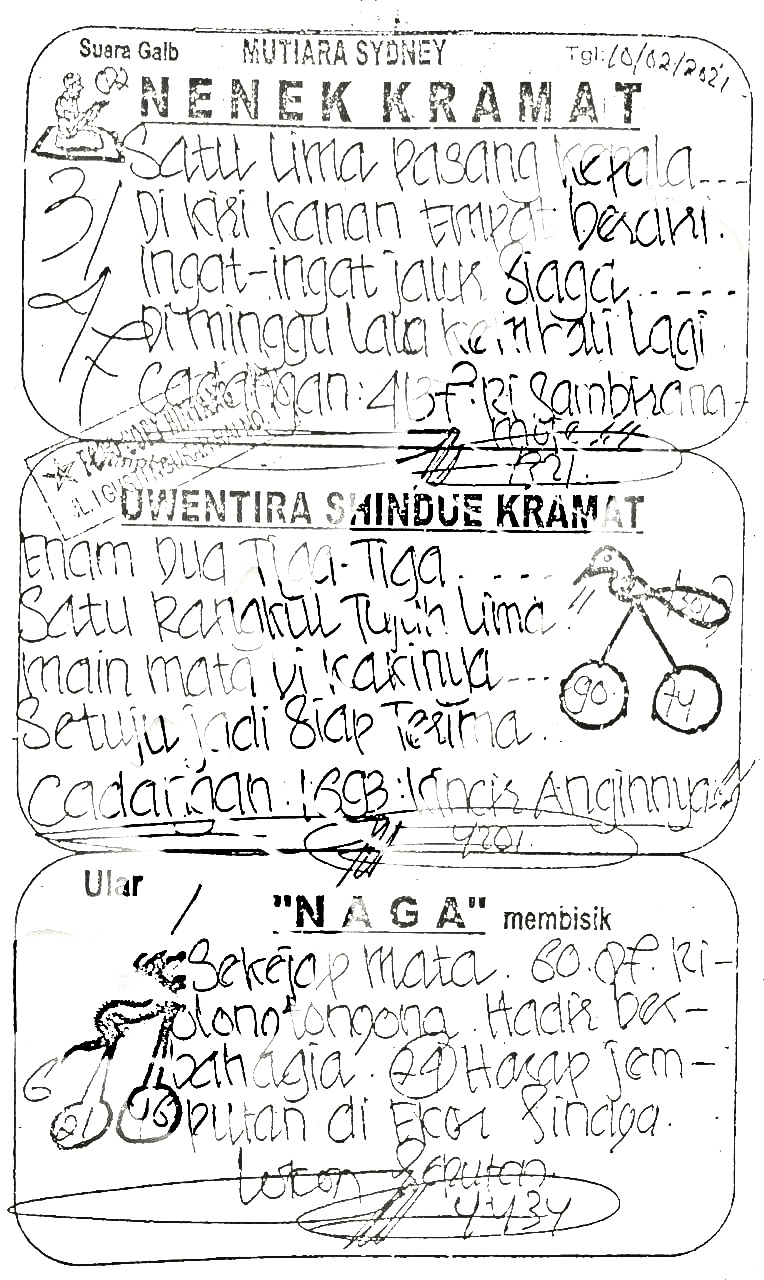 Suara Galb MUTIARA SYDNEY Tgl: 10/02/2021
NENEK KRAMAT
Satu Lima pasang kepala....
Di kiri kanan Empat berdiri.
Ingat-ingat jalur Siaga.....
Di minggu lalu kembali lagi
3/
Cadangan: 4137. Di Sambirana-
1721.
UWENTIRA SHINDUE KRAMAT
Enam Dua Tiga-Tiga.....
Satu Rangkul Tujuh Lima
main mata di kakinya....
Setuju jadi Siap Terima.
90 74
Cadangan: 1693: Kincir Anginnya
4201.
Ular
"NAGA" membisik
Sekejap mata. 60.87. Di-
olong tongona. Hadir ber-
bahagia. 29 Harap jem-
putan di Ekor Singa.
6 21 45
Lokon Seputan
4434